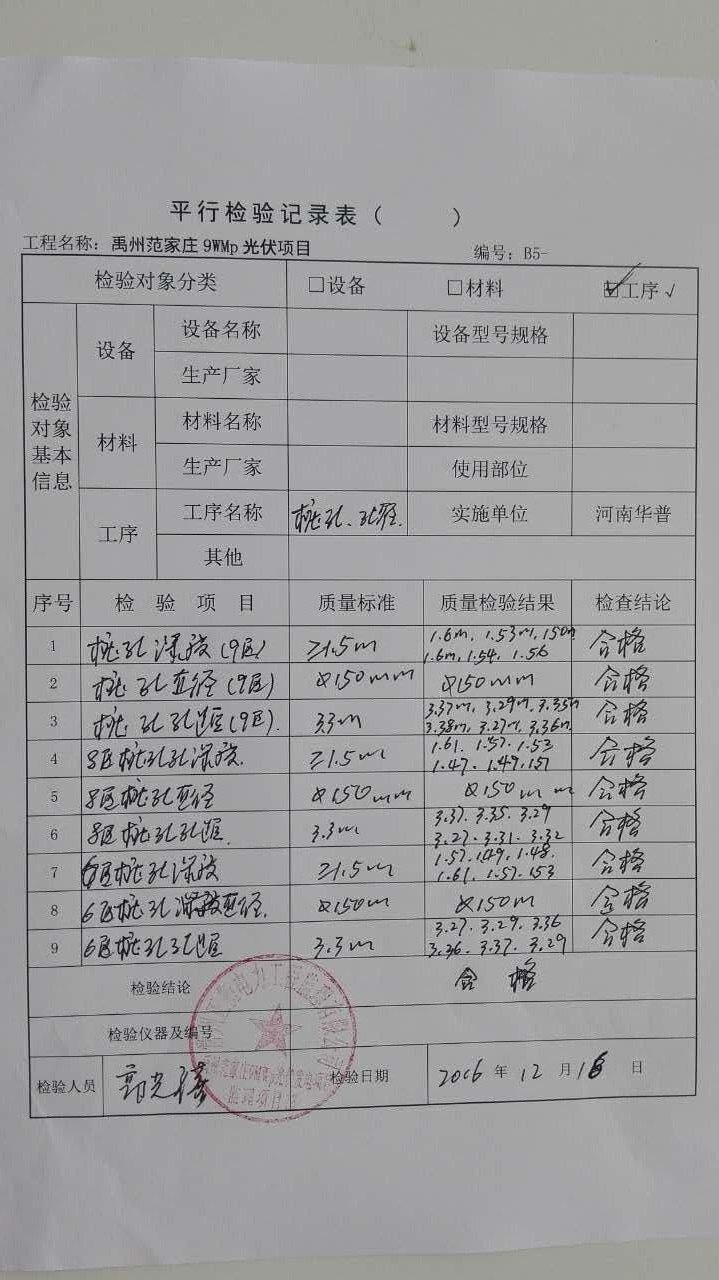 平行检验记录表（ ）
工程名称：禹州范家庄9WMp光伏项目 编号：B5-
检验对象分类 □设备 □材料 ☑工序√
检验对象基本信息
设备 设备名称 设备型号规格
生产厂家
材料 材料名称 材料型号规格
生产厂家 使用部位
工序 工序名称 桩孔、孔径. 实施单位 河南华普
其他
序号 检验项目 质量标准 质量检验结果 检查结论
1 桩孔深度(9区) ≥1.5m 1.6m, 1.53m, 1.50m 合格
1.6m, 1.54, 1.56
2 桩孔直径(9区) 150mm 150mm 合格
3 桩孔孔距(9区). 3.3m 3.37m, 3.29m, 3.35m 合格
3.38m, 3.27m, 3.36m
4 8区桩孔孔深度. ≥1.5m 1.61. 1.57. 1.53 合格
1.47. 1.49. 157
5 8区桩孔直径 150mm 150mm 合格
6 8区桩孔孔距. 3.3m 3.37. 3.35. 3.29 合格
3.27. 3.31. 3.32
7 6区桩孔深度 ≥1.5m 1.57. 1.49. 1.48. 合格
1.61. 1.57. 153
8 6区桩孔直径. 150m 150m 合格
9 6区桩孔孔距 3.3m 3.27. 3.29. 3.36 合格
3.36. 3.37. 3.29
检验结论 合格
检验仪器及编号
检验人员 检验日期 2006年12月16日